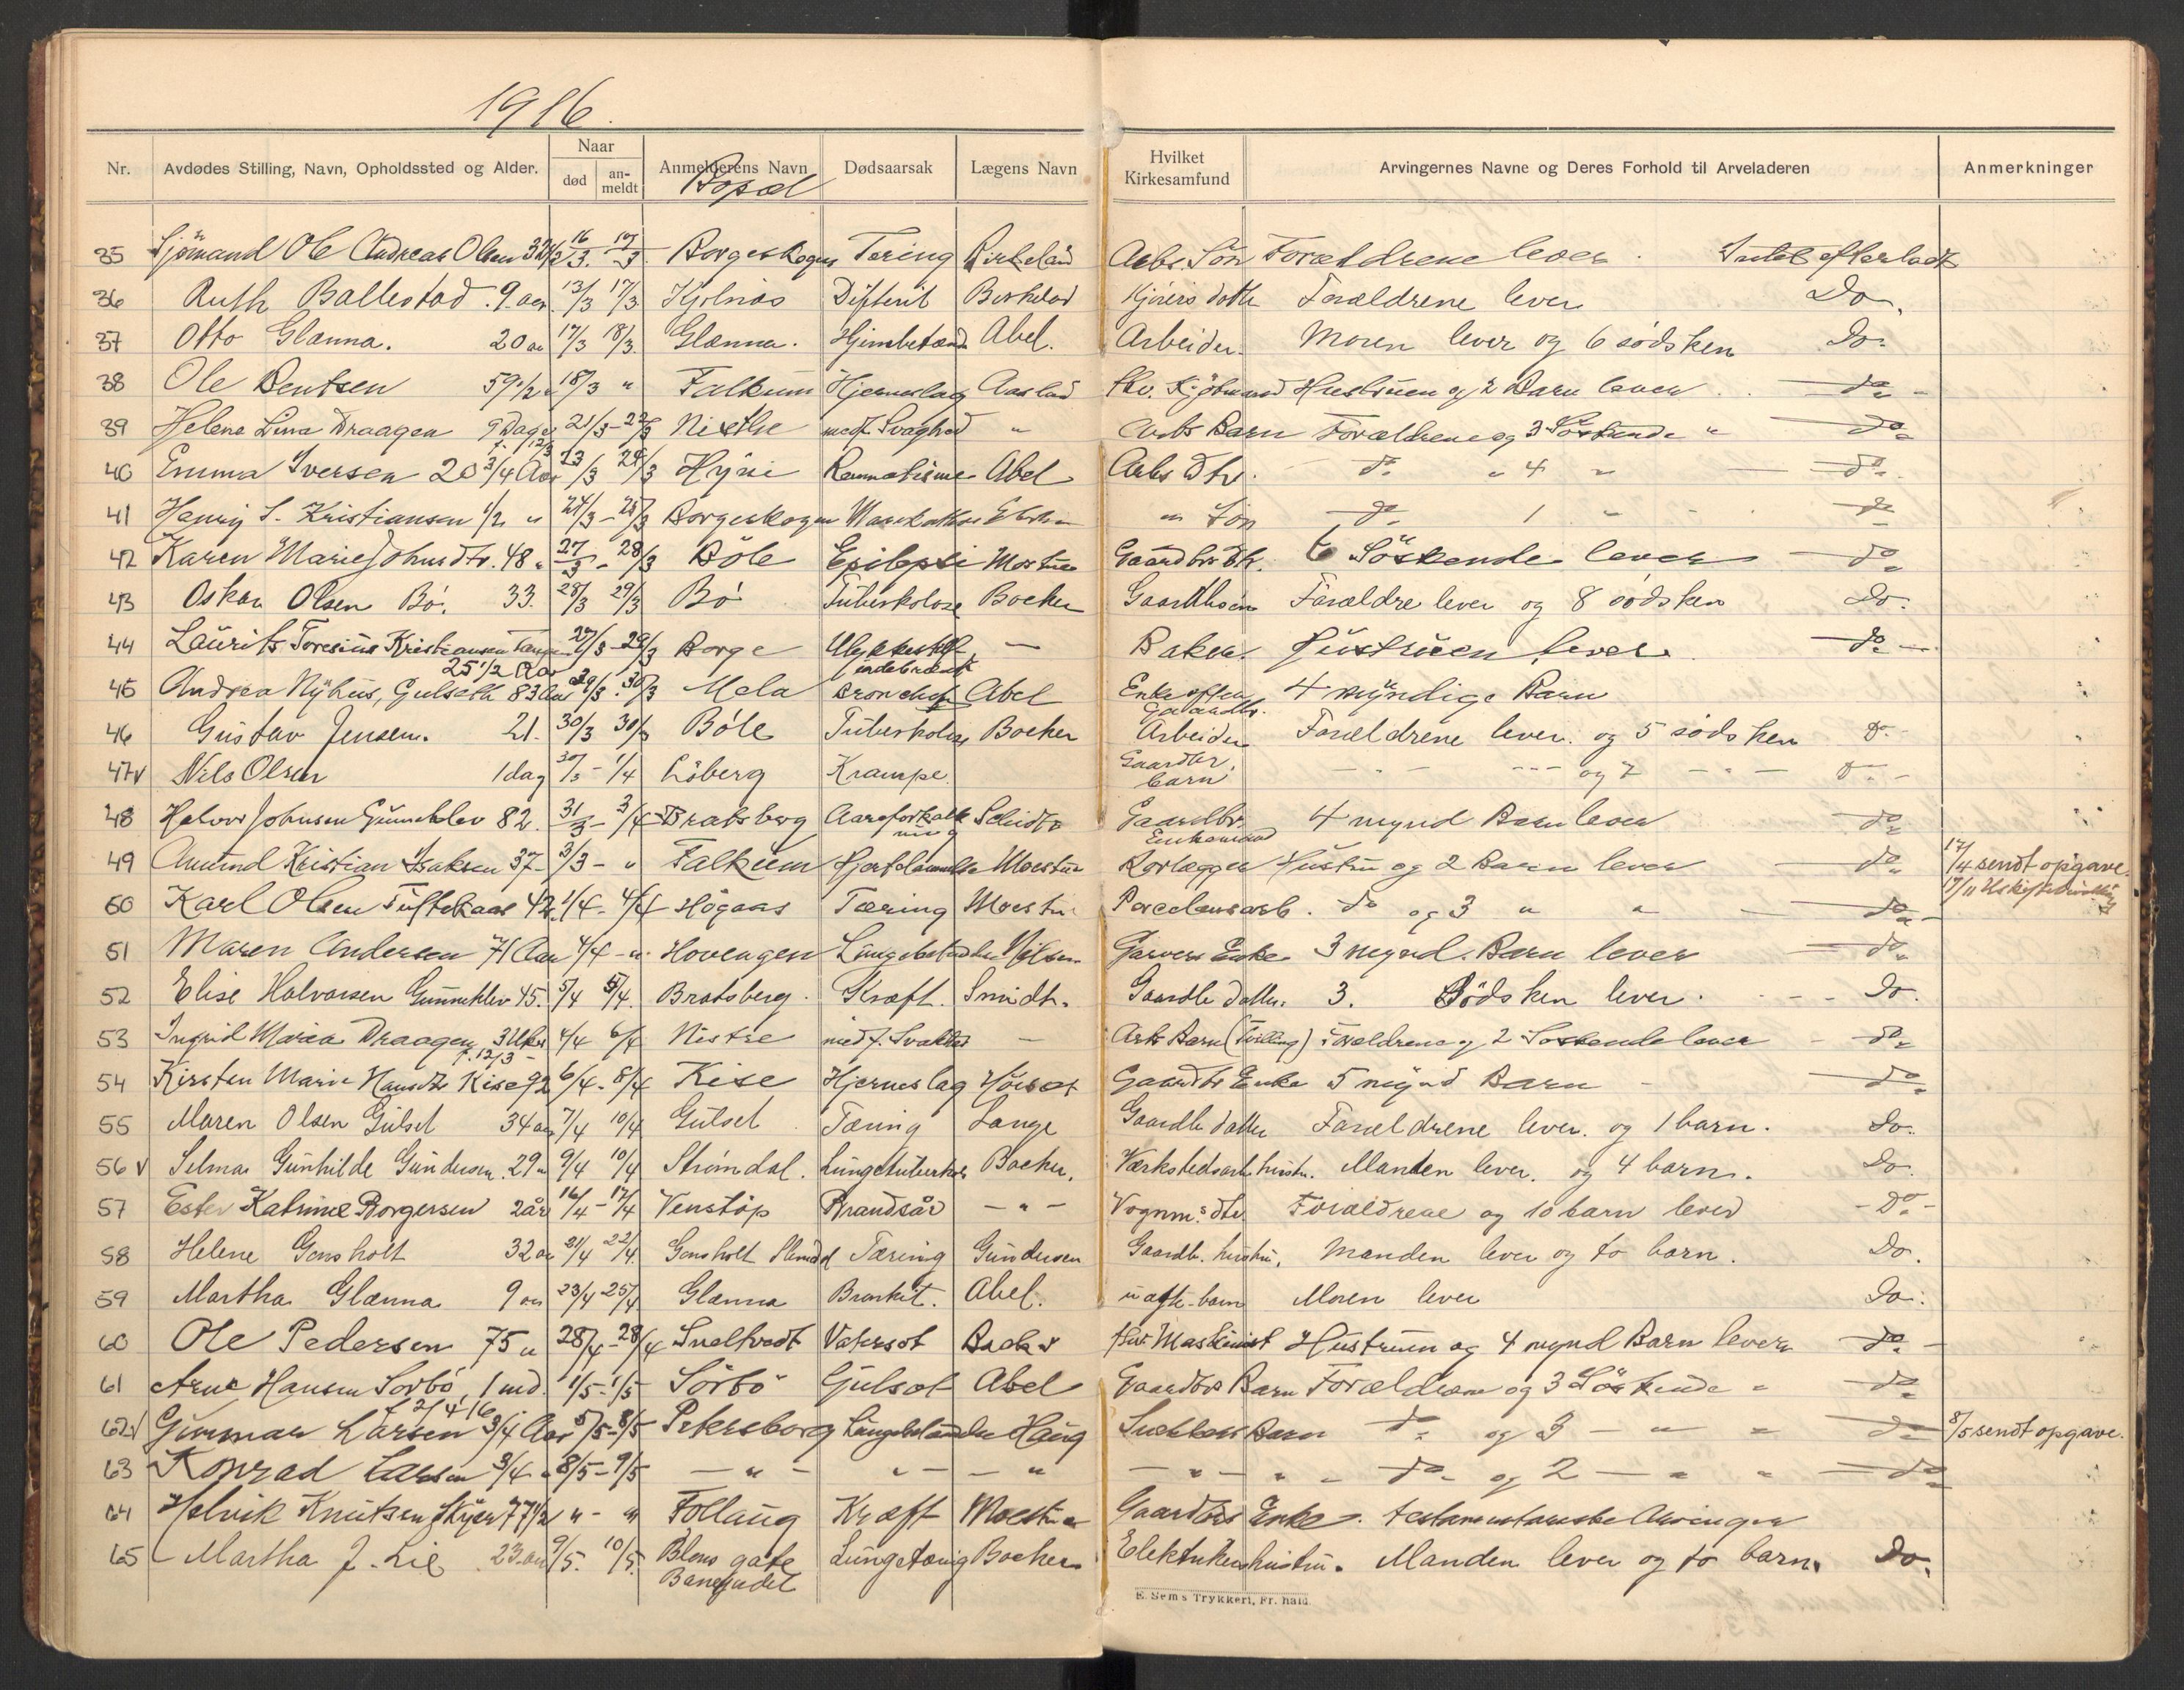 1916.
Nr. Avdødes Stilling, Navn, Opholdssted og Alder. Naar død an-meldt Anmelderens Navn Bopæl Dødsaarsak Lægens Navn Hvilket Kirkesamfund Arvingernes Navne og Deres Forhold til Arveladeren Anmerkninger
35 Sjömand Ole Andreas Olsen 32 1/2 16/3. 17/3 Borgeskogen Tering Birkeland Arbs. Sön Forældrene lever. Intet efterladt
36 Ruth Ballestad. 9 aar. 13/3 17/3 Kjølnæs Difterit Birkelad datter Forældrene lever Do.
37 Otto Glænna. 20 aar 17/3 18/3. Glænna. Abel. Arbeider. Moren lever og 6 sødsken Do.
38 Ole Bentsen 59 1/2 18/3 " Falkum Hjerneslag Aaslad fhv. Kjöbmand Hustruen og 2 Barn lever do
39 Helene Lina Draagen 9 Dage f. 12/3 21/3 - 22/3 Nistke medf. Svaghed " Arbs Barn Forældrene og 3 Söskende " do
40 Emma Iversen 20 3/4 Aar 23/3 24/3 Hyni Reumatisme Abel Arbs Dtr. do " 4 " do
41 Henry S. Kristiansen 1/2 " 24/3 - 25/3 Borgeskogen " Sön do 1 " do
42 Karen Marie Johnsdtr. 48 " 27/3 - 28/3 Böle Epilepsi Moestue Gaardbr. Dtr. 6 Söskende lever do
43 Oskar Olsen Bø. 33. 28/3 29/3 Bø Tuberkolose Backer Forældre lever og 8 sødsken Do.
44 Laurits Toresius Kristiansen Tange 25 1/2 Aar 27/3 - 29/3 Borge Ulykkestilf. - Baker. Hustruen lever do
45 Andrea Nyhus, Gulseth 83 Aar 29/3. 30/3 Mela Abel Enke efter Gaardbr. 4 myndige Barn
46 Gustav Jensen. 21. 30/3 30/3 Bøle Tuberkolose Backer Arbeider Forældrene lever. og 5 sødsken D.
47 v Nils Olsen 1 dag 30/3 - 1/4 Löberg Krampe. Gaardbr. barn - - - og 7 - - D.
48 Halvor Johnsen Gunneklev 82. 31/3 - 3/4 Bratsberg Aareforkalkning Schidtz Gaardbr. Enkemand 4 mynd Barn lever do
49 Amund Kristian Isaksen 37 - 3/3 - " Falkum Hjertelammelse Moestue Rørlægger Hustru og 2 Barn lever do 17/4 sendt opgave.
50 Karl Olsen Tuftekaas 42. 1/4 - 4/4 Høgaas Tæring Moestue Porcelænsarb. do og 3 " " do 17/11
51 Maren Andersen 71 Aar 4/4 - " Hovengen Lungebetændelse Nilsen Garvers Enke 3 mynd. Barn lever do
52 Elise Halvorsen Gunneklev 45. 5/4 5/4. Bratsberg. Kræft. Smidt. Gaardb datter. 3. Sødsken lever. Do.
53 Ingrid Maria Draagen 3 Uker f. 12/3 - 4/4 6/4 Nistke medf. Svakhed - Arbs Barn (Tvilling) Forældrene og 2 Söskende lever do
54 Kirsten Marie Hansdtr Kise 92 6/4 - 8/4 Kise Hjerneslag Høisæt Gaardbr Enke 5 mynd Barn do
55 Maren Olsen Gulset 34 aar 7/4 10/4 Gulset Tæring Lange Gaardb datter Forældrene lever. og 1 barn. Do.
56 v Selma Gunhilde Gundersen. 29 " 9/4 10/4 Strømdal. Lungetuberkol. Backer. Værkstedsarb. hustru. Manden lever. og 4 barn. Do.
57 Ester Katrine Borgersen 2 år 16/4 - 17/4 Venstöp Brandsår - " - Vognm.s dtr. Forældrene og 10 barn lever - Do -
58 Helene Gonsholt 32 aar 21/4 22/4. Gonsholt Slemdal Tæring Gundersen Gaardb. hustru. Manden lever og to barn. Do.
59 Martha Glænna 9 aar 23/4 25/4 Glænna Bronkit. Abel. uægte barn Moren lever Do.
60 Ole Pedersen 75 " 28/4 - 28/4 Sneltvedt Vatersot Backer fhv Maskinist Hustruen og 4 mynd Barn lever do
61 Arne Hansen Sorbö, 1 md. f 2/4 16 1/5 - 1/5 Sörbö Gulsot Abel Gaardbrs Barn Forældrene og 3 Söskende " do
62 v Gunnar Larsen 3/4 Aar 5/5 - 8/5 Petersborg Lungebetændelse Haug Snekkers Barn do og 3 - " " do 8/5 sendt opgave.
63 Konrad Larsen 3/4 " 8/5 - 9/5 - " - " - - " - " - " " do og 2 - " " do
64 Helvik Knutsen 77 1/2 " - " Follaug Kræft Moestue Gaardbrs Enke. testamentariske Arvinger
65 Martha J. Lie 23 aar 9/5. 10/5. Bloms gate Lungetæring Backer Elektrikers hustru. Manden lever og to barn. Do.
E. Sem's Trykkeri, Fr.hald.